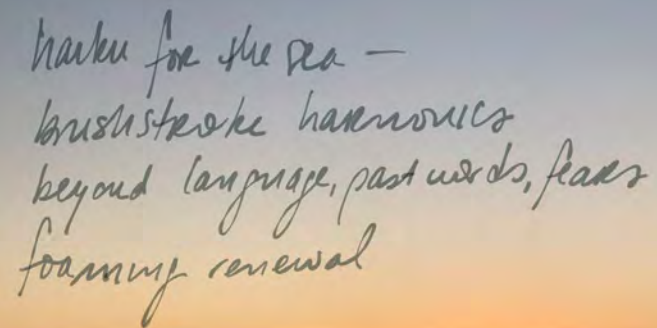 haiku for the sea —
brushstroke harmonics
beyond language, past words, fears
foaming renewal